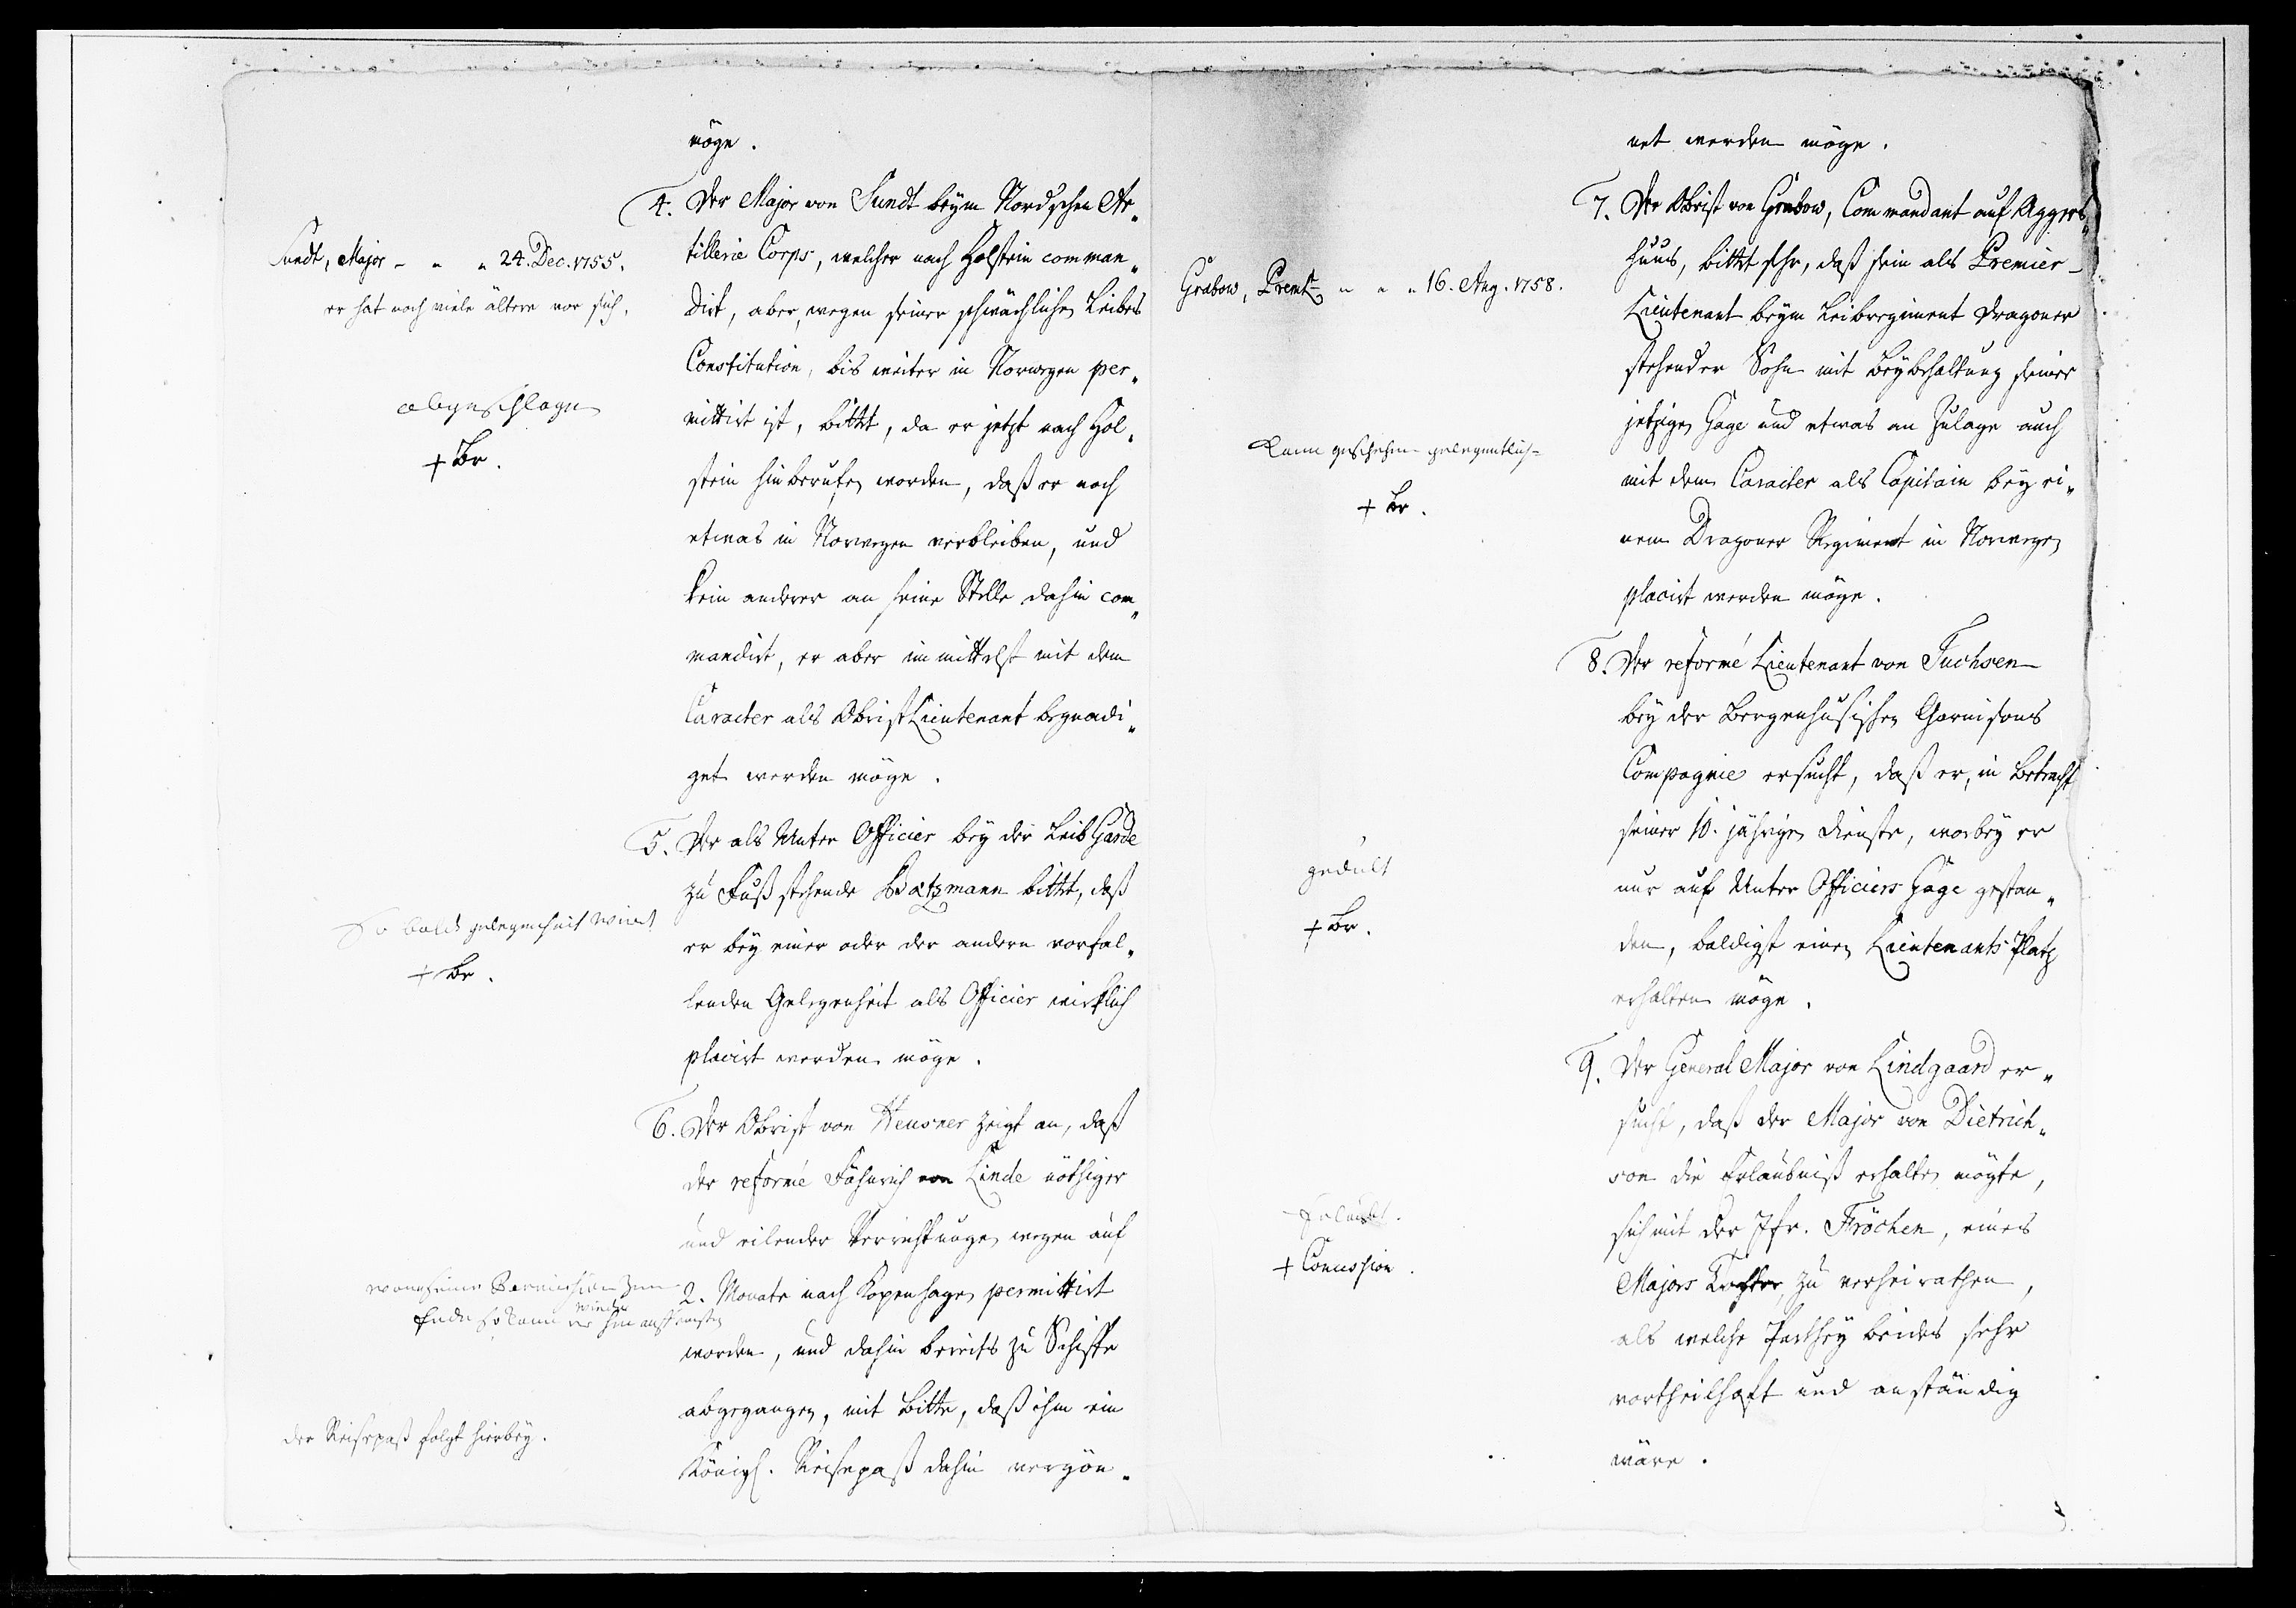 möge.
4. Der Major von Sundt beym Nordschen Ar„
tillerie Corps, welcher nach Holstein comman„
dirt, aber, wegen seiner schwächlichen Leibes
Constitution, bis weiter in Norwegen per„
mittirt ist, bittet, da er jetzt nach Hol„
stein hinberufen worden, daß er noch
etwas in Norwegen verbleiben, und
kein anderer an seine Stelle dahin com„
mandirt, er aber immittelst mit dem
Caracter als Obristlieutenant begnadi„
get werden möge.
Sundt, Major - " " 24. Dec. 1755.
er hat noch viele ältere vor sich.
abgeschlagen
+ Br.
5. Der als Unter Officier bey der Leib Garde
zu Fuß stehende Bratzmann bittet, daß
er bey einer oder der andern vorfal„
lenden Gelegenheit als Officier wirklich
placirt werden möge.
So bald gelegenheit wird
+ Br.
6. Der Obrist von Heusner zeigt an, daß
der reformé Fähnrich von Linde nöthiger
und eilender Verrichtungen wegen auf
2. Monate nach Kopenhagen permittirt
worden, und dahin bereits zu Schiffe
abgegangen, mit Bitte, daß ihm ein
Königl. Reisepaß dahin vergön„
wann seine Permission zum
Ende so kann er wieder hin
der Reisepaß folgt hierbey.
net werden möge.
7. Der Obrist von Grabow, Commandant auf Aggers„
huus, bittet sehr, daß sein als Premier-
Lieutenant beym Leibregiment Dragoner
stehender Sohn mit Beybehaltung seiner
jetzigen Gage und etwas an Zulage auch
mit dem Caracter als Capitain bey ei„
nem Dragoner Regiment in Norwegen
placirt werden möge.
Grabow, Premlt. " " " 16. Aug. 1758.
Kann geschehen gelegentlich
+ Br.
8. Der reformé Lieutenant von Fuchsen
bey der Bergenhusischen Garnisons
Compagnie ersucht, daß er, in Betracht
seiner 10. jährigen Dienste, worbey er
nur auf Unter Officiers Gage gestan„
den, baldigst einen Lieutenants Platz
erhalten möge.
gedult
+ Br.
9. Der General Major von Lindgaard er„
sucht, daß der Major von Dietrich„
son die Erlaubniß erhalten mögte,
sich mit der Jfr. Fröchen, eines
Majors Tochter, zu verheirathen,
als welche Parthey beides sehr
vortheilhaft und anständig
wäre.
Erlaubt.
+ Concession.